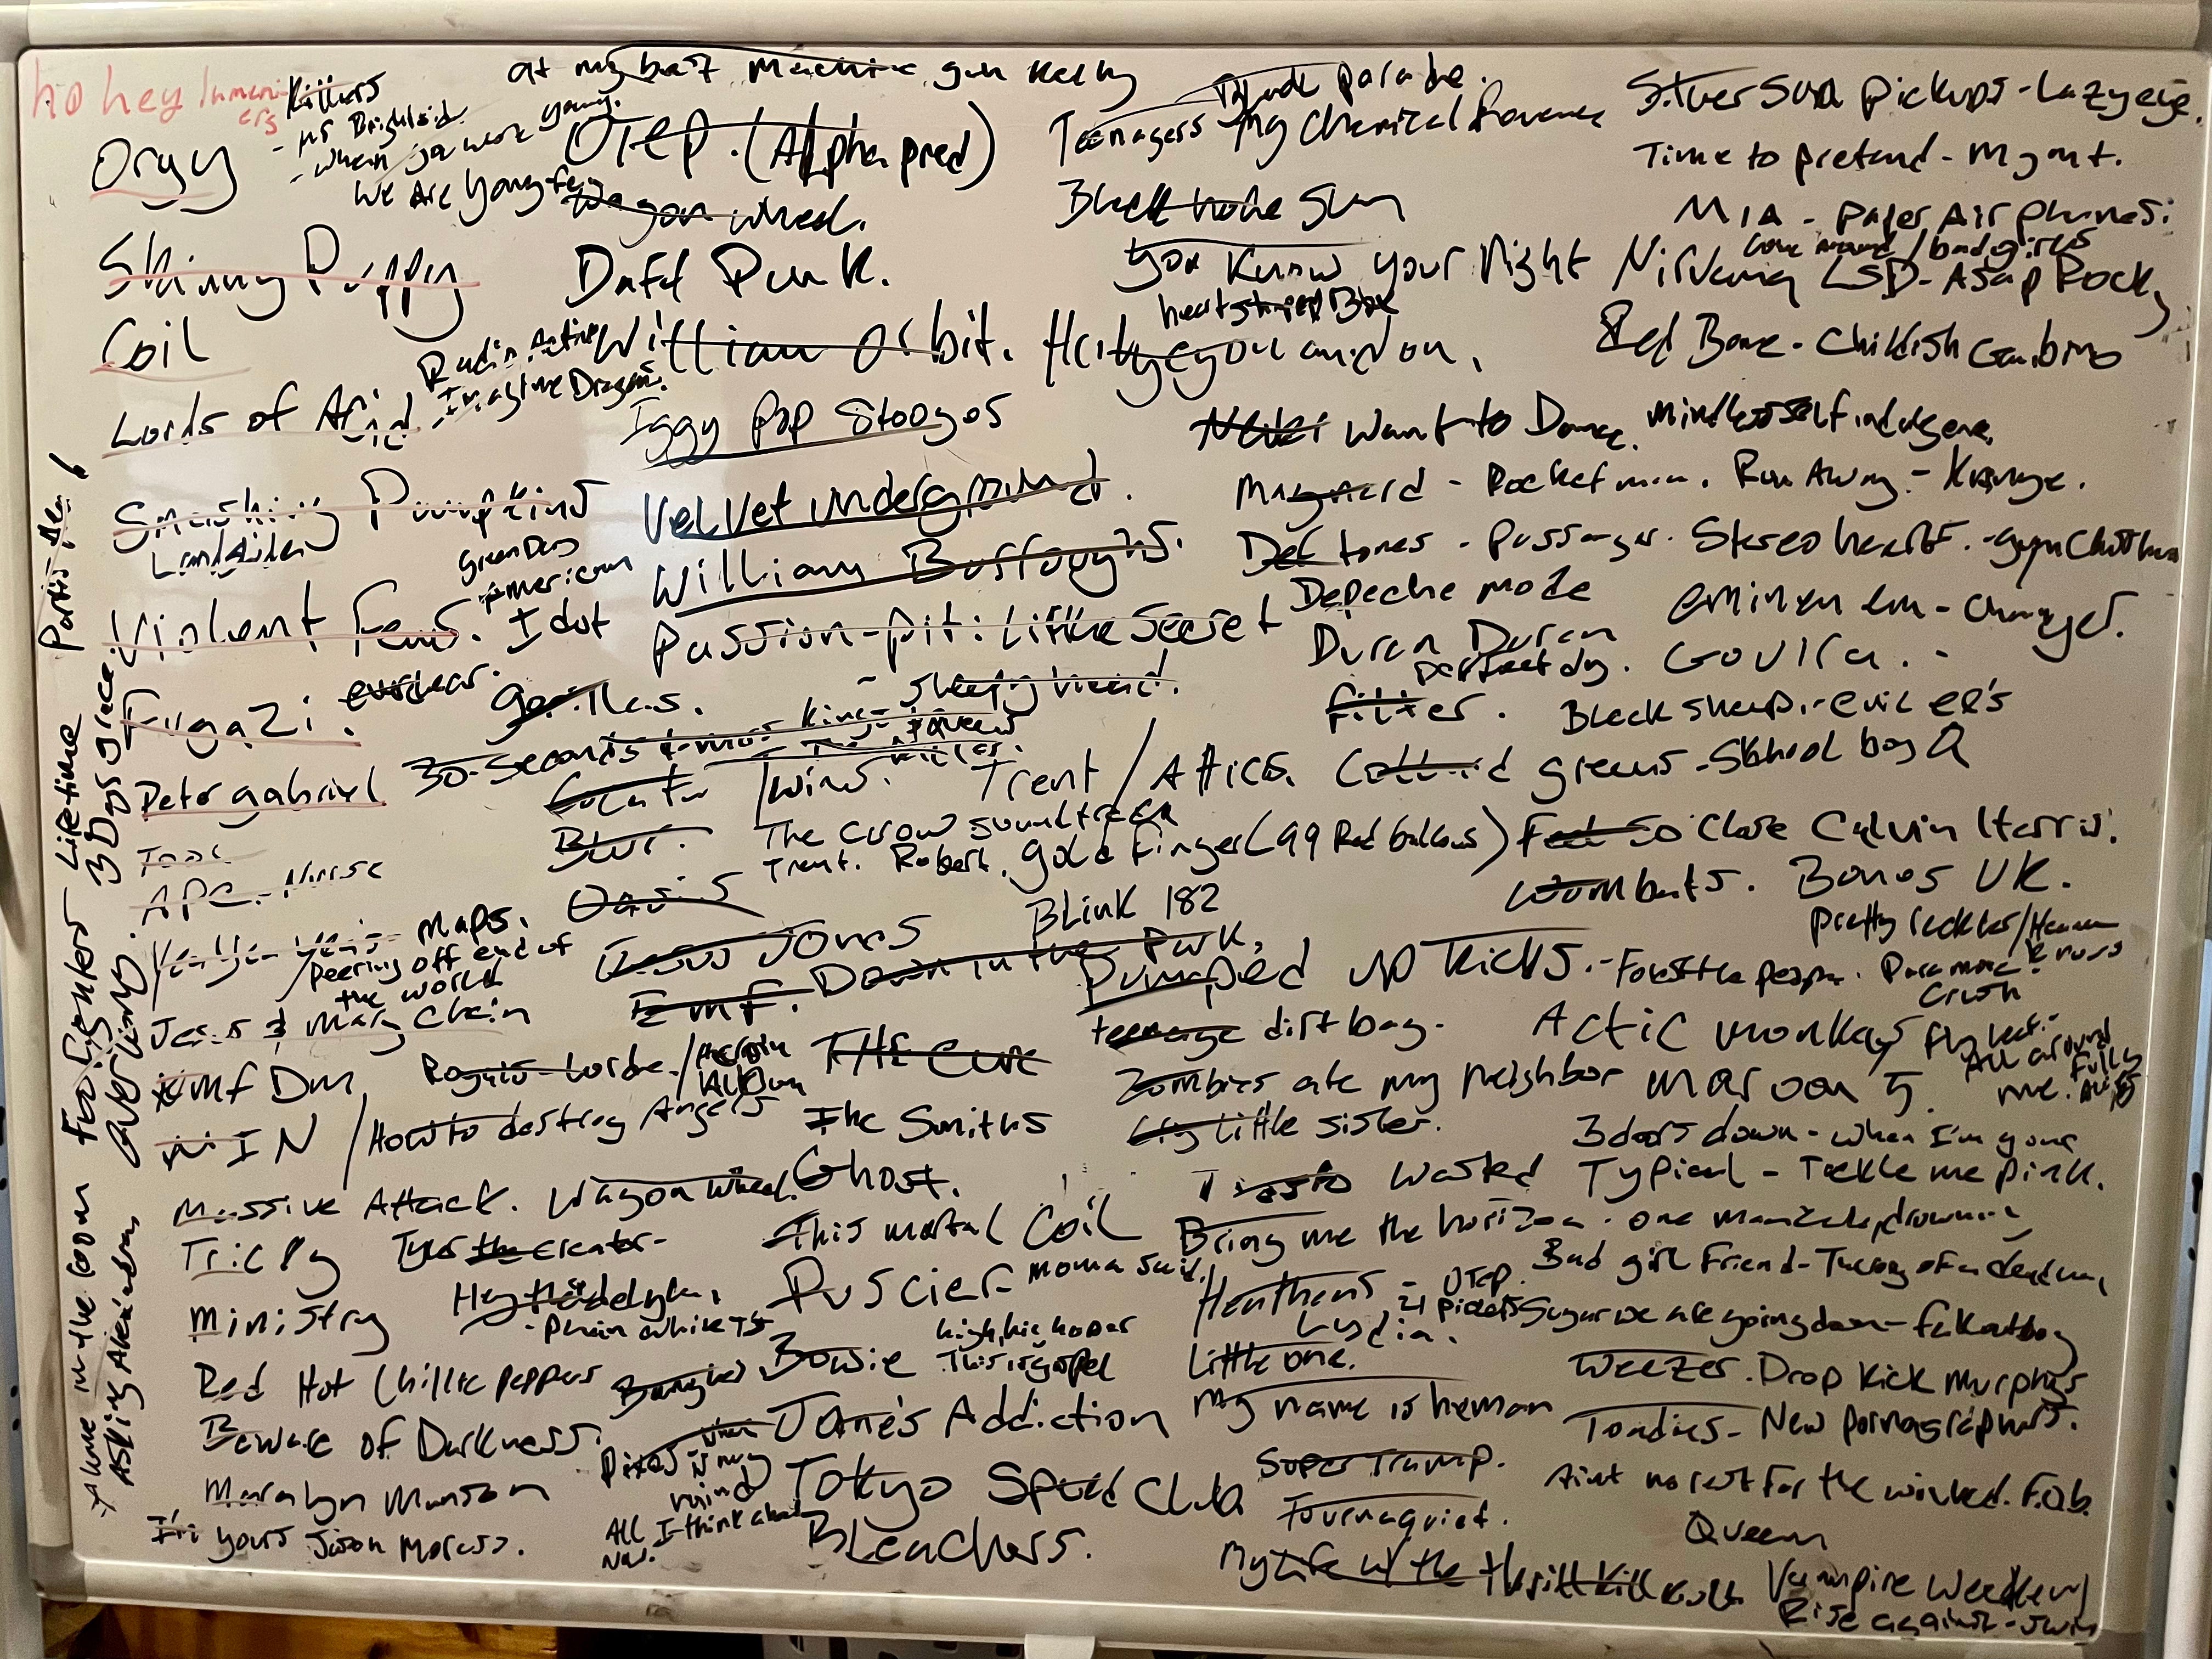 ho hey lumeniers
Killers
- mr Brightside
- when you were young.
We Are Young-fun
Orgy
Skinny Puppy
Coil
Radio Active
- Imagine Dragons.
Lords of Acid
Smashing Pumpkins
Landslide
Green Day
American
Idot
Violent Fems.
Fugazi.
everclear.
Peter gabriel
Tool
APC - Nurse
Yeah Yeah Yeahs - maps.
/peering off end of
the world
Jesus & Mary Chain
KMF DM
Royals - Lorde. / Heroin
NIN / How to destroy Angels
Massive Attack. Wagon wheel.
Tricky
Tyler the creator-
Ministry
Hey there delyla,
- Plain white Ts
Red Hot Chillie peppers
Beware of Darkness.
Maralyn Manson
I'm yours Jason Moraz.
Foo Fighters
Lifetime
3 Days grace
Everlong.
Alone in the room
Asking Alexandria
at my best machine gun kelly
OTEP. (Alpha pred)
Wagon wheel.
Daft Punk.
William Orbit.
Iggy Pop Stooges
Velvet underground.
William Burroughs.
Passion-pit: Little Secret
- Sleepyhead.
gorillas.
30-Seconds to mars Kings
Twins.
Blur.
Trent / Attics.
The crow soundtrack
Trent. Robert. gold finger (99 Red balloons)
Oasis
Blink 182
Jesus Jones
EMF. Down in the Park,
THE Cure
The Smiths
Ghost.
This mortal Coil
Puscifer - moma said
Bowie
high, high hopes
This is gospel
Jane's Addiction
Pixies - where is my
mind
All I think about
Now.
Tokyo Speed Club
Bleachers.
Black parade.
Teenagers - My Chemical Romance
Black hole Sun
You Know your Right Nirvana
heart shaped Box
Never Want to Dance. Mindless self indulgence,
Maynard - Rocket man. Run Away - Kanye.
Deftones - Passenger. Stereo hearts. - gym Class
Depeche mode
Duran Duran
perfect day.
Filter.
Feel So Close Calvin Harris.
Wombats. Bones UK.
Pumped up Kicks. - Foster the people.
teenage dirtbag.
Zombies ate my neighbor
Cry Little sister.
Tiesto Wasted
Bring me the horizon.
Heathens - 21 pilots
OTEP.
Lydia.
Little one.
My name is human
Super Tramp.
Tournaquiet.
My Life w/ the thrill kill kult
Silver Sun pickups - Lazy eye.
Time to pretend - Mgmt.
MIA - paper Air planes:
/ bad girls
LSD - Asap Rocky
Red Bone - Childish Gambino
eminem -
Black sheep. - evil ex's
greens - School boy Q
Pretty reckless / Heaven knows
Paramore
Crush
Actic monkeys
fly leaf.-
All around
me. Fully
Alive
Maroon 5
3 doors down - when I'm gone
Typical - Tickle me pink.
Bad girl Friend - Theory of a deadman
Sugar we are going down - fall out boy
Weezer. Drop Kick Murphys
Toadies - New pornagraphers.
Aint no rest for the wicked.
Queen
Vampire Weekend
Rise against - Swing